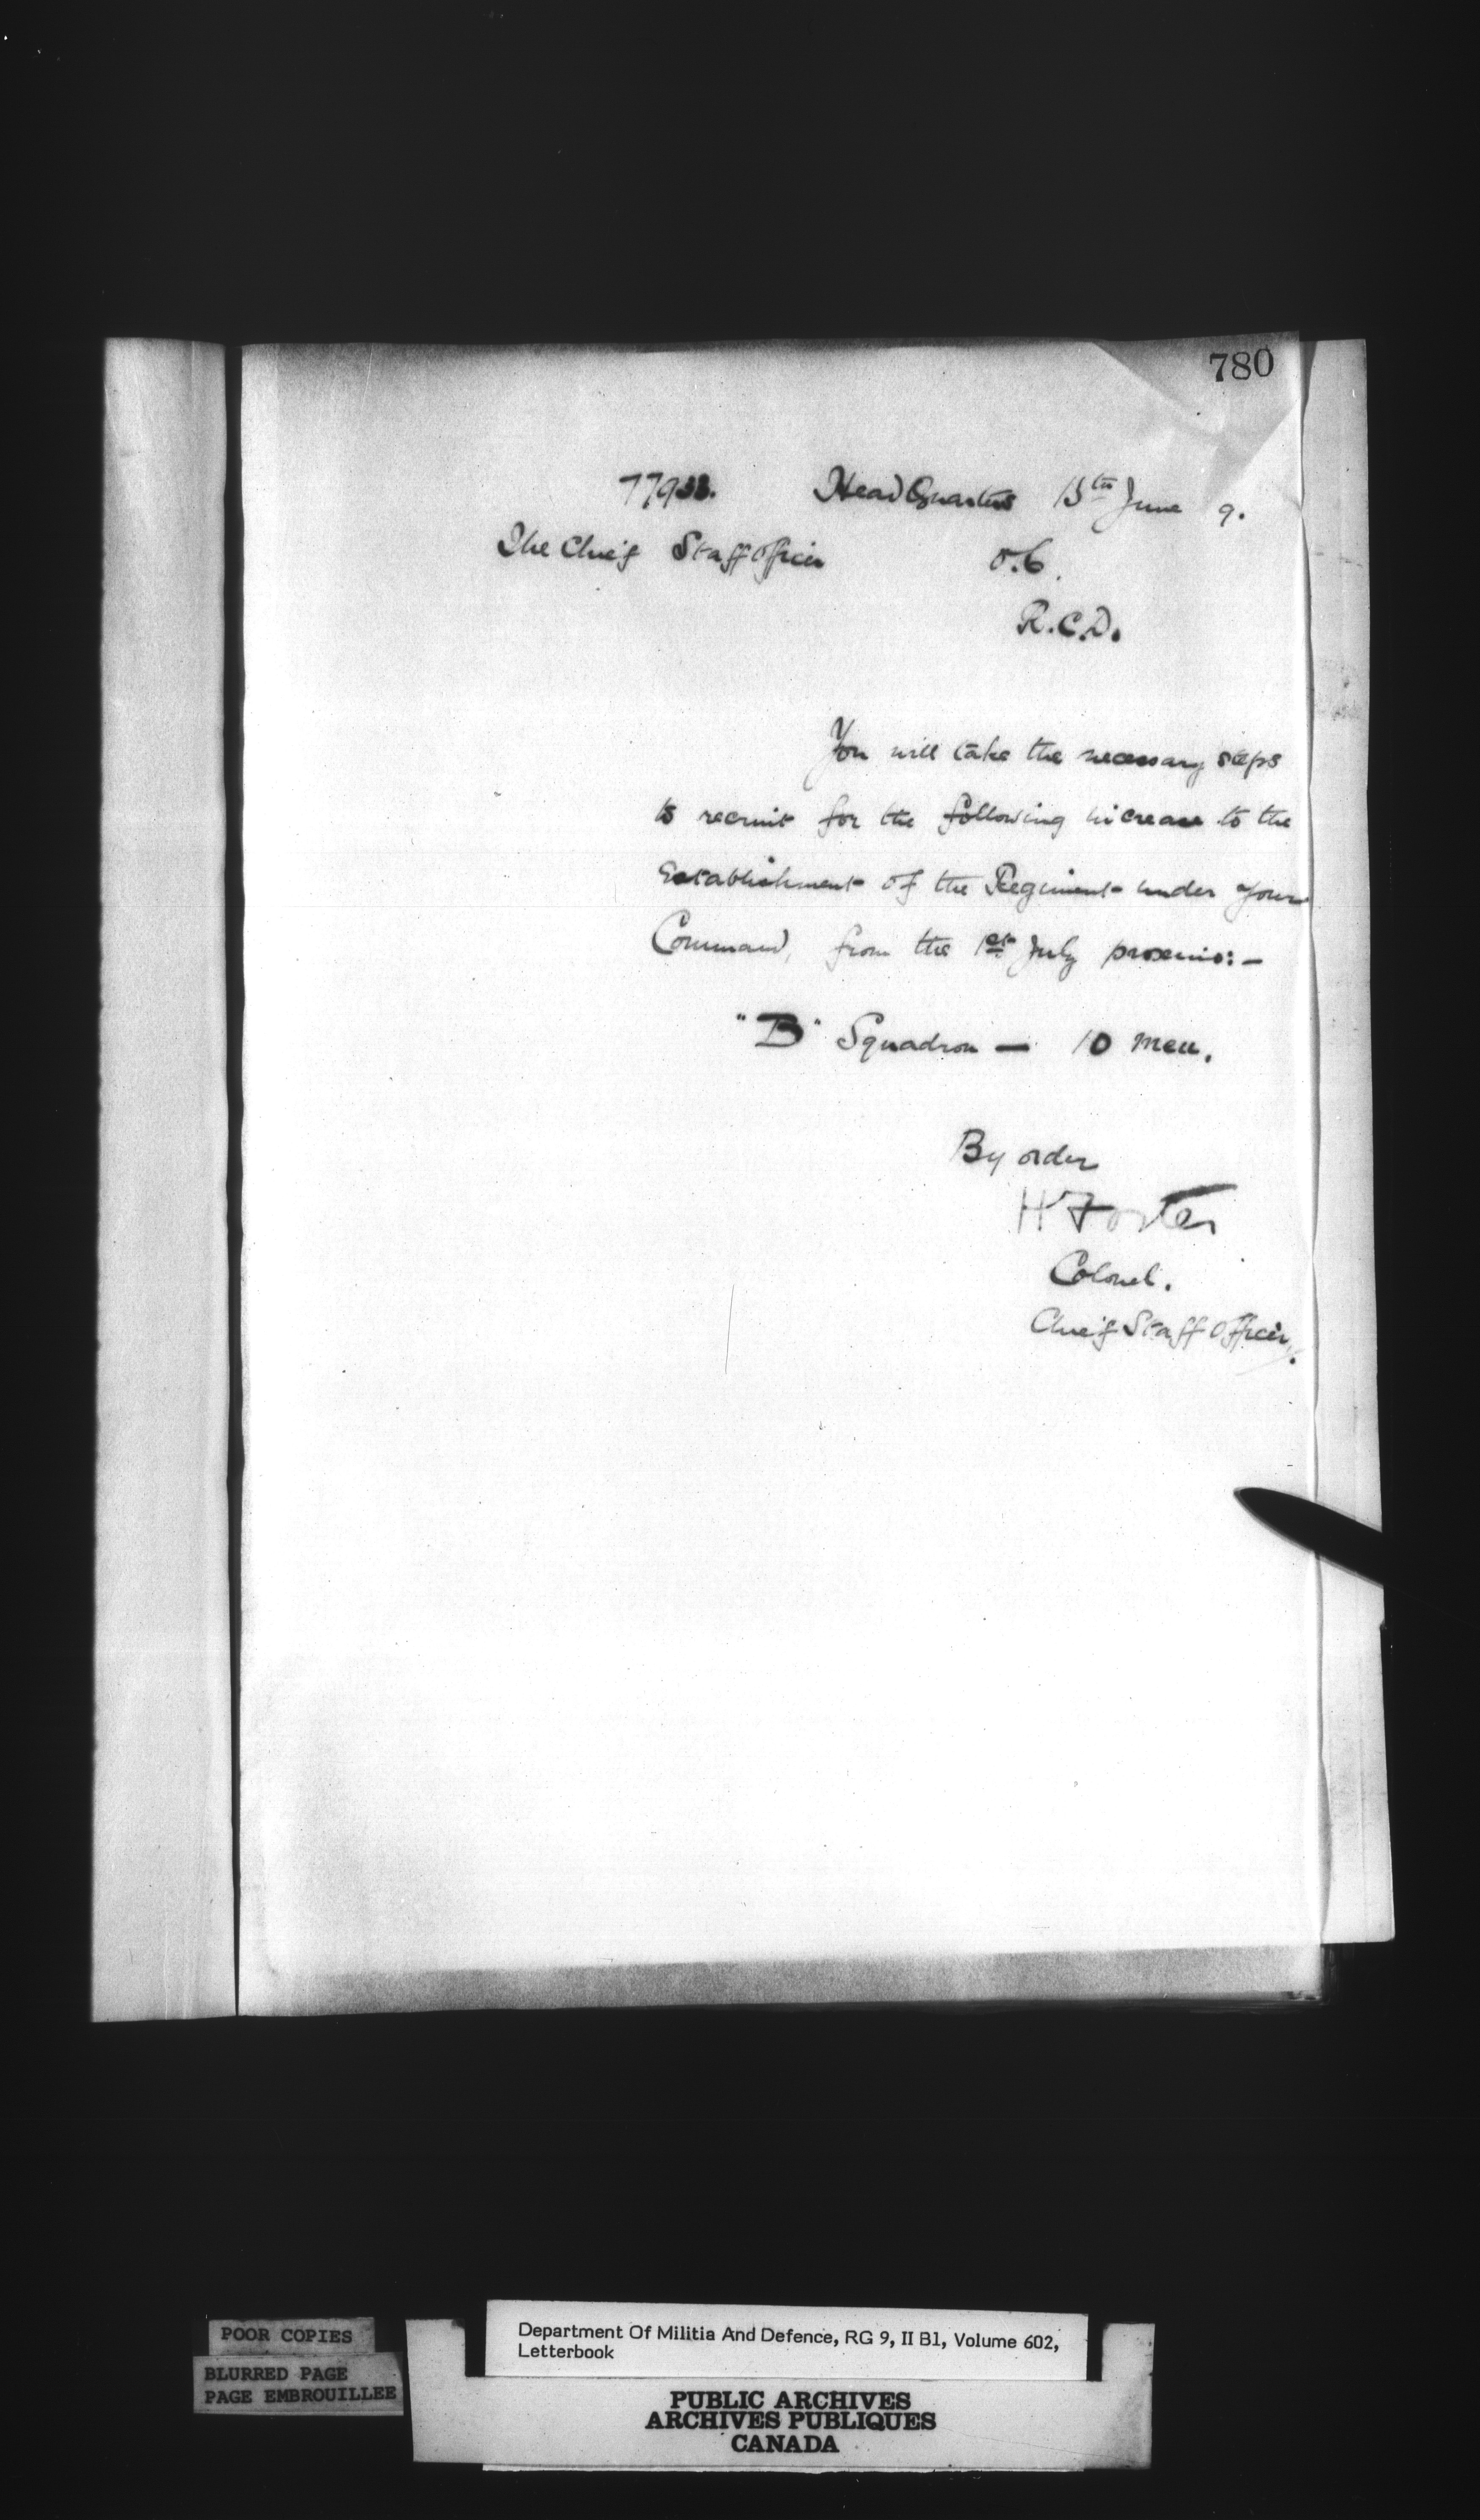 780
77933. Head Quarters 15th June 9.
The Chief Staff Officer O.C.
R.C.D.
You will take the necessary steps
to recruit for the following increase to the
Establishment of the Regiment under your
Command, from the 1st July proximo:—
"B" Squadron — 10 men.
By order
H Foster
Colonel.
Chief Staff Officer.
POOR COPIES
BLURRED PAGE
PAGE EMBROUILLEE
Department Of Militia And Defence, RG 9, II B1, Volume 602,
Letterbook
PUBLIC ARCHIVES
ARCHIVES PUBLIQUES
CANADA